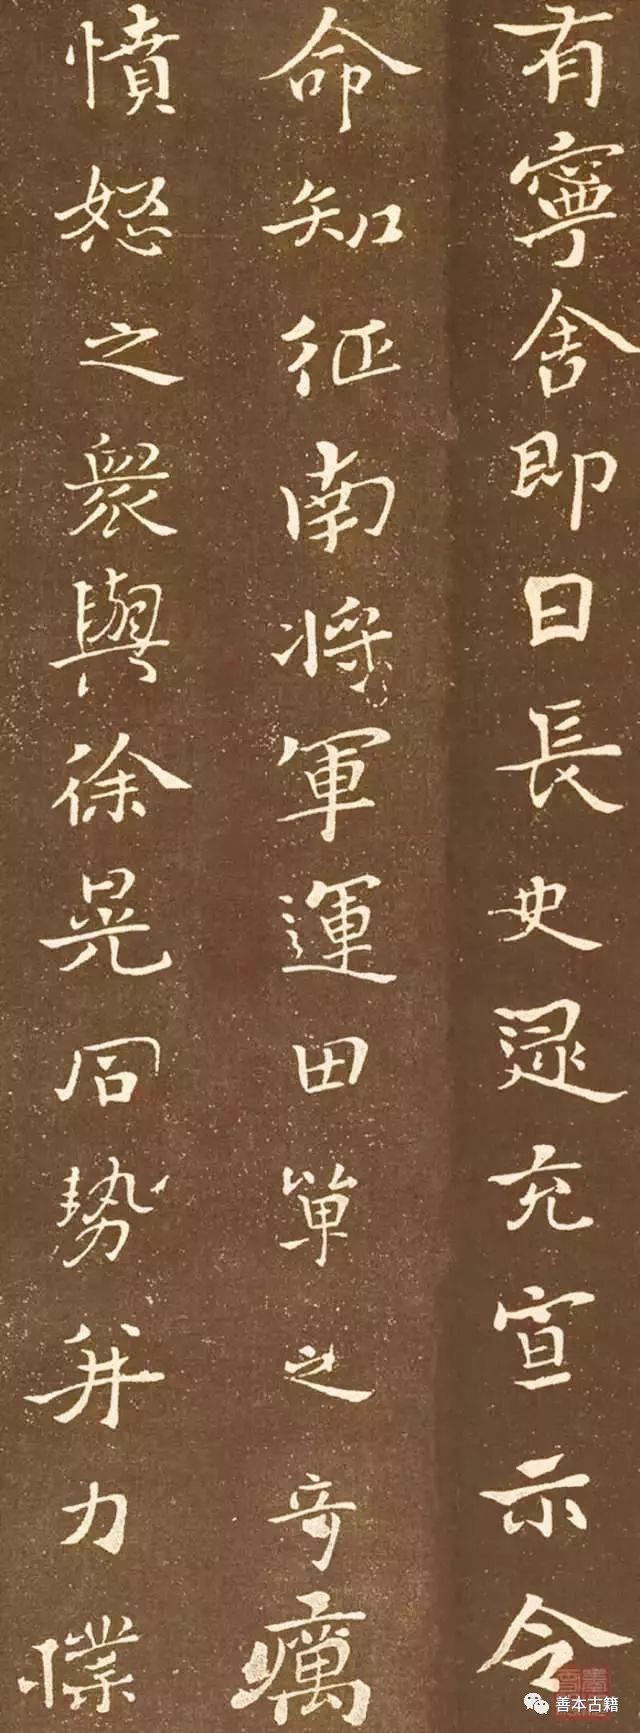 有寧舍即日長史逯充宣示令
命知征南將軍運田單之奇厲
憤怒之衆與徐晃同勢并力撲
善本古籍